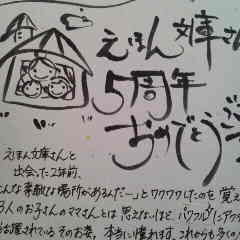 えほん文庫さん
5周年
おめでとう
えほん文庫さんと
出会った2年前、
こんな素敵な場所があるんだー」とワクワクしたのを覚え
3人のお子さんのママさんとは思えないほど、パワフルにアクテ
活躍されているそのお姿、本当に憧れます。これからも多くの